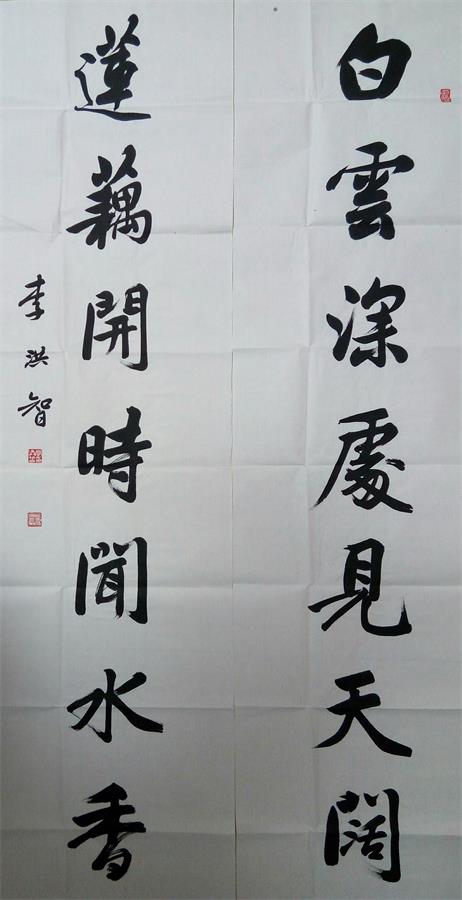 白雲深處見天闊
蓮藕開時聞水香
李洪智